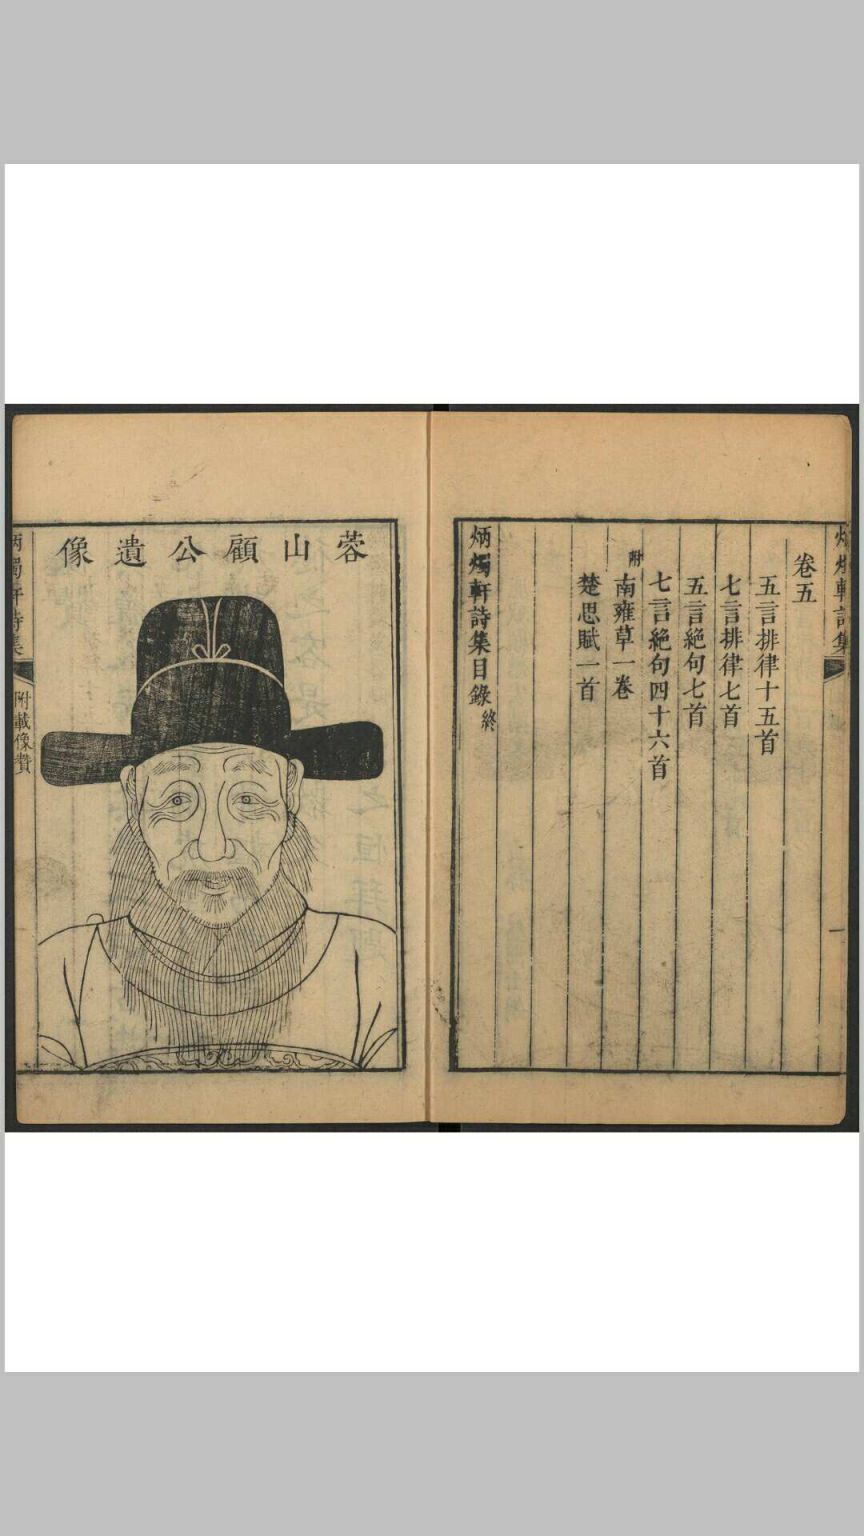 炳燭軒詩集
卷五
五言排律十五首
七言排律七首
五言絕句七首
七言絕句四十六首
附
南雍草一卷
楚思賦一首
炳燭軒詩集目錄終
蓉山顧公遺像
炳燭軒詩集
附載像贊